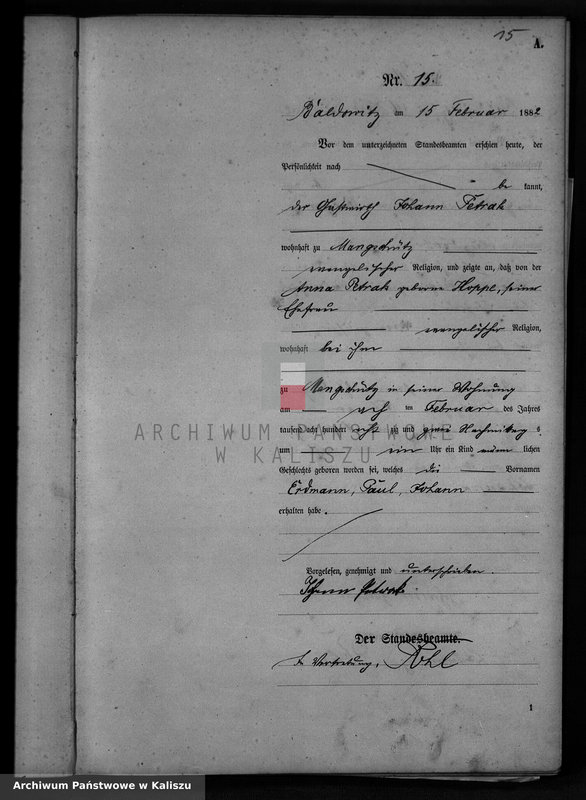 15
A.
Nr. 15.
Baldowitz am 15 Februar 1882
Vor dem unterzeichneten Standesbeamten erschien heute, der
Persönlichkeit nach
be kannt,
der Gastwirth Johann Petrak
wohnhaft zu Mangschütz
evangelischer Religion, und zeigte an, daß von der
Anna Petrak geborne Hoppe, seiner
Ehefrau
evangelischer Religion,
wohnhaft bei ihm
zu Mangschütz in seiner Wohnung
am acht ten Februar des Jahres
tausend acht hundert acht zig und zwei Nachmittag s
um ein Uhr ein Kind männ lichen
Geschlechts geboren worden sei, welches die Vornamen
Erdmann, Paul, Johann
erhalten habe.
Vorgelesen, genehmigt und unterschrieben.
Johann Petrak.
Der Standesbeamte.
In Vertretung, Pohl
1
ARCHIWUM PAŃSTWOWE
W KALISZU
Archiwum Państwowe w Kaliszu